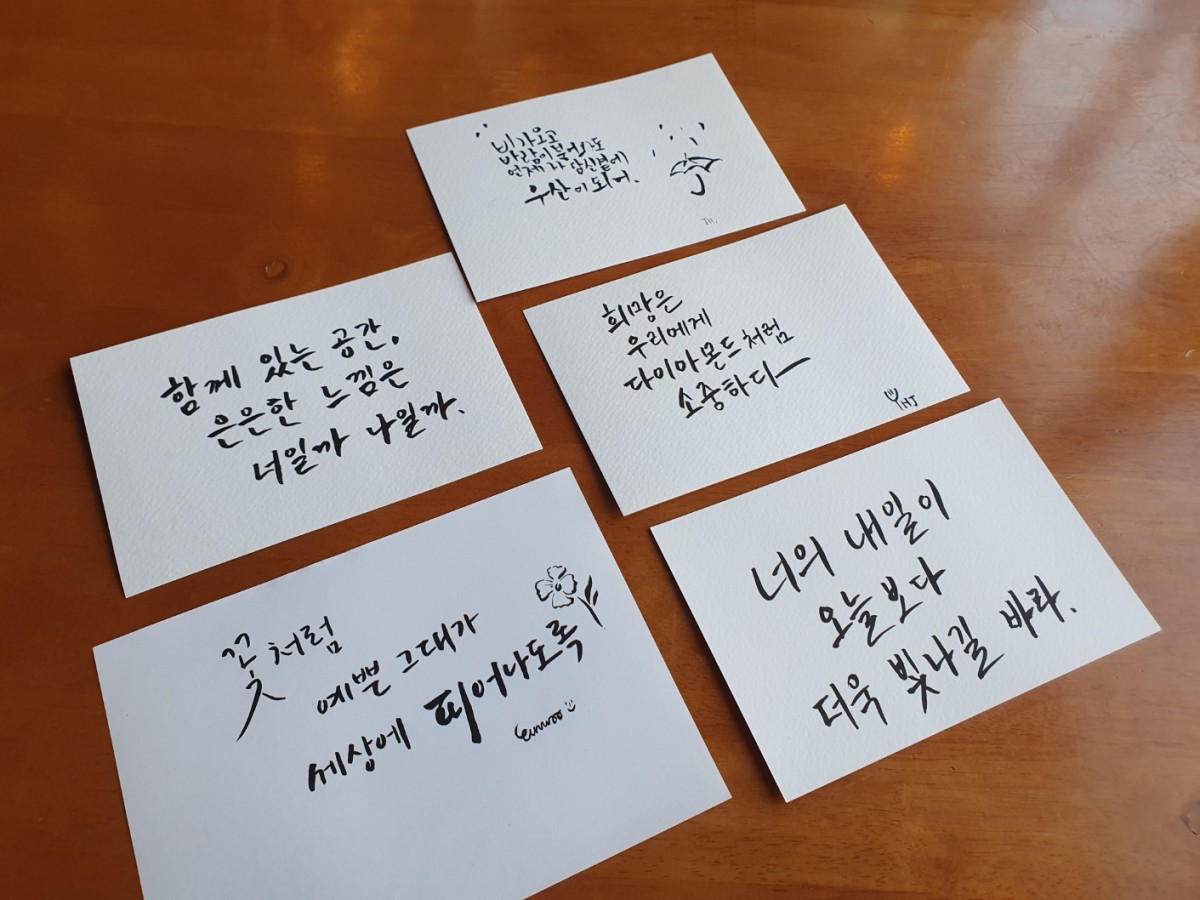 비가오고
바람이불어와도
언제나 당신곁에
우산이되어.
JH.
희망은
우리에게
다이아몬드처럼
소중하다
HJ
함께 있는 공간,
은은한 느낌은
너일까 나일까.
너의 내일이
오늘보다
더욱 빛나길 바라.
꽃처럼
예쁜 그대가
세상에 피어나도록
Eunwoo